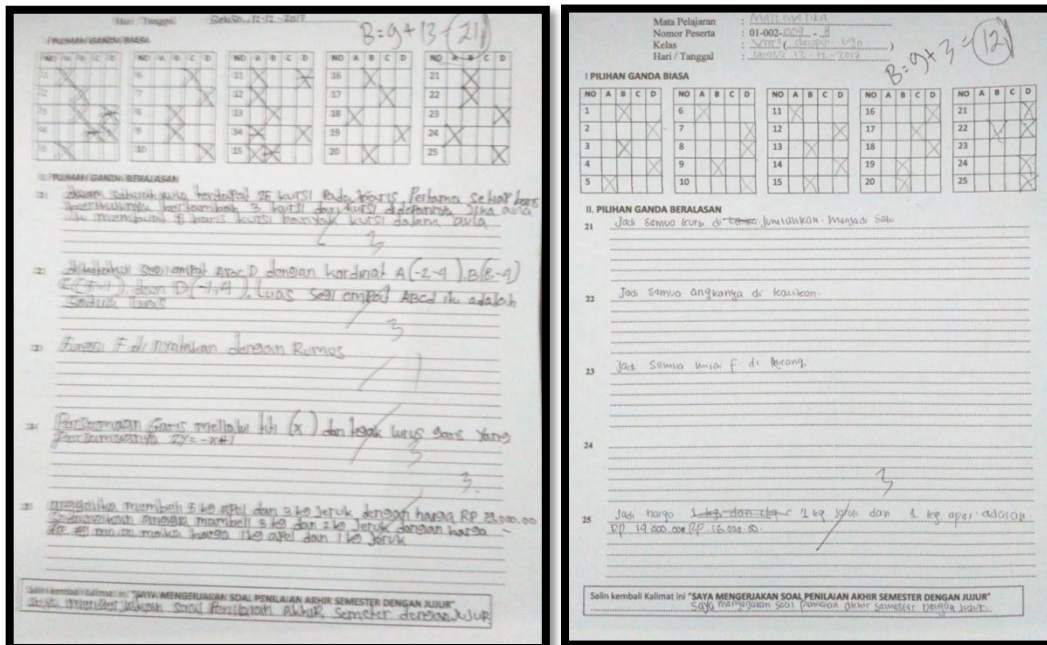 Hari Tanggal Selasa, 12-12-2017
B = 9 + 13 = 21
I PILIHAN GANDA BIASA
NO A B C D NO A B C D NO A B C D NO A B C D NO A B C D
6 11 16 21
12 17 22
13 18 23
14 19 24
10 15 20 25
II. PILIHAN GANDA BERALASAN
dalam sebuah aula terdapat 25 kursi Pada baris Pertama setiap baris
berikutnya bertambah 3 kursi dari kursi didepannya Jika aula
itu memuat baris kursi banyak kursi dalam aula
3
diketahui segi empat ABCD dengan kordinat A(-2-4), B(8-4)
dan D(-1,4). Luas segi empat ABCd itu adalah
satuan luas
3
Fungsi F di nyatakan dengan Rumus
1
Persamaan Garis melalui titi (x) dan tegak lurus garis yang
Persamaannya 2y = -x+1
3
3.
25 membeli 5 kg apel dan 3 kg Jeruk dengan harga RP
membeli 3 kg dan 2 kg Jeruk dengan harga
maka harga 1 kg apel dan 1 kg Jeruk
Salin kembali Kalimat ini "SAYA MENGERJAKAN SOAL PENILAIAN AKHIR SEMESTER DENGAN JUJUR"
Saya mengerjakan soal Penilaian AkhiR Semester dengan JuJuR
Mata Pelajaran : MATEMATIKA
Nomor Peserta : 01-002-009 - 8
Kelas : VIII 5 (delapan lima)
Hari / Tanggal : Selasa 12-12-2017
B = 9 + 3 = 12
I PILIHAN GANDA BIASA
NO A B C D NO A B C D NO A B C D NO A B C D NO A B C D
1 6 11 16 21
2 7 12 17 22
3 8 13 18 23
4 9 14 19 24
5 10 15 20 25
II. PILIHAN GANDA BERALASAN
21 Jadi semua kursi di Jumlahkan menjadi satu
22 Jadi semua angkanya di kalikan.
23 Jadi semua nilai F di kurang.
24
3
25 Jadi harga 1 kg dan 1 kg 1 kg jeruk dan 1 kg apel adalah
RP 19.000.00
Salin kembali Kalimat ini "SAYA MENGERJAKAN SOAL PENILAIAN AKHIR SEMESTER DENGAN JUJUR"
Saya mengerjakan soal penilaian akhir semester dengan jujur.